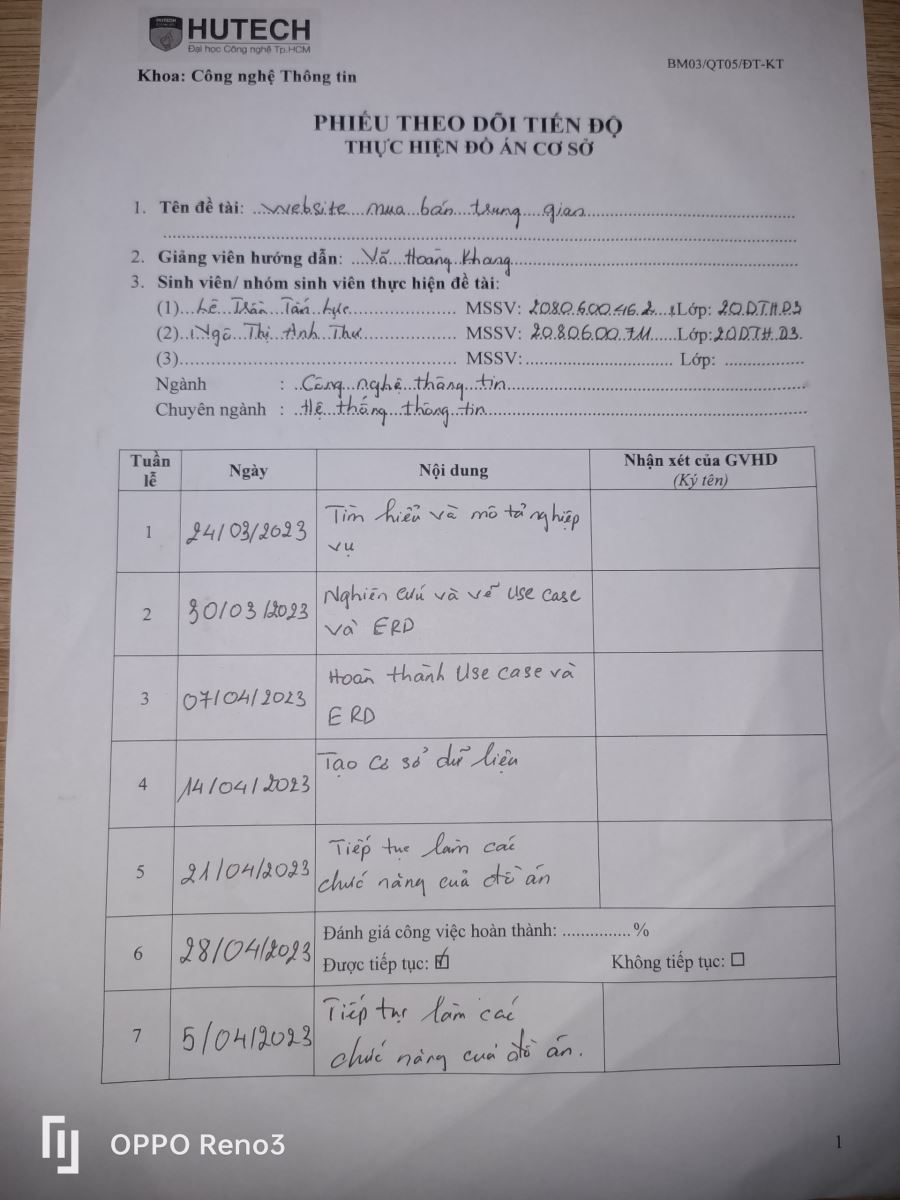 HUTECH
HUTECH
Đại học Công nghệ Tp.HCM
Khoa: Công nghệ Thông tin
BM03/QT05/ĐT-KT
PHIẾU THEO DÕI TIẾN ĐỘ
THỰC HIỆN ĐỒ ÁN CƠ SỞ
1. Tên đề tài: Website mua bán trung gian
2. Giảng viên hướng dẫn: Võ Hoàng Khang
3. Sinh viên/ nhóm sinh viên thực hiện đề tài:
(1) Lê Trần Tấn Lực MSSV: 2080600462 Lớp: 20DTHD3
(2) Ngô Thị Anh Thư MSSV: 2080600711 Lớp: 20DTHD3.
(3) MSSV: Lớp:
Ngành : Công nghệ thông tin
Chuyên ngành : Hệ thống thông tin
Tuần lễ Ngày Nội dung Nhận xét của GVHD
(Ký tên)
1 24/03/2023 Tìm hiểu và mô tả nghiệp
vụ
2 30/03/2023 Nghiên cứu và vẽ Use case
và ERD
3 07/04/2023 Hoàn thành Use case và
ERD
4 14/04/2023 Tạo cơ sở dữ liệu
5 21/04/2023 Tiếp tục làm các
chức năng của đồ án
6 28/04/2023 Đánh giá công việc hoàn thành: ...............%
Được tiếp tục: ☑ Không tiếp tục: ☐
7 5/04/2023 Tiếp tục làm các
chức năng của đồ án.
OPPO Reno3
1